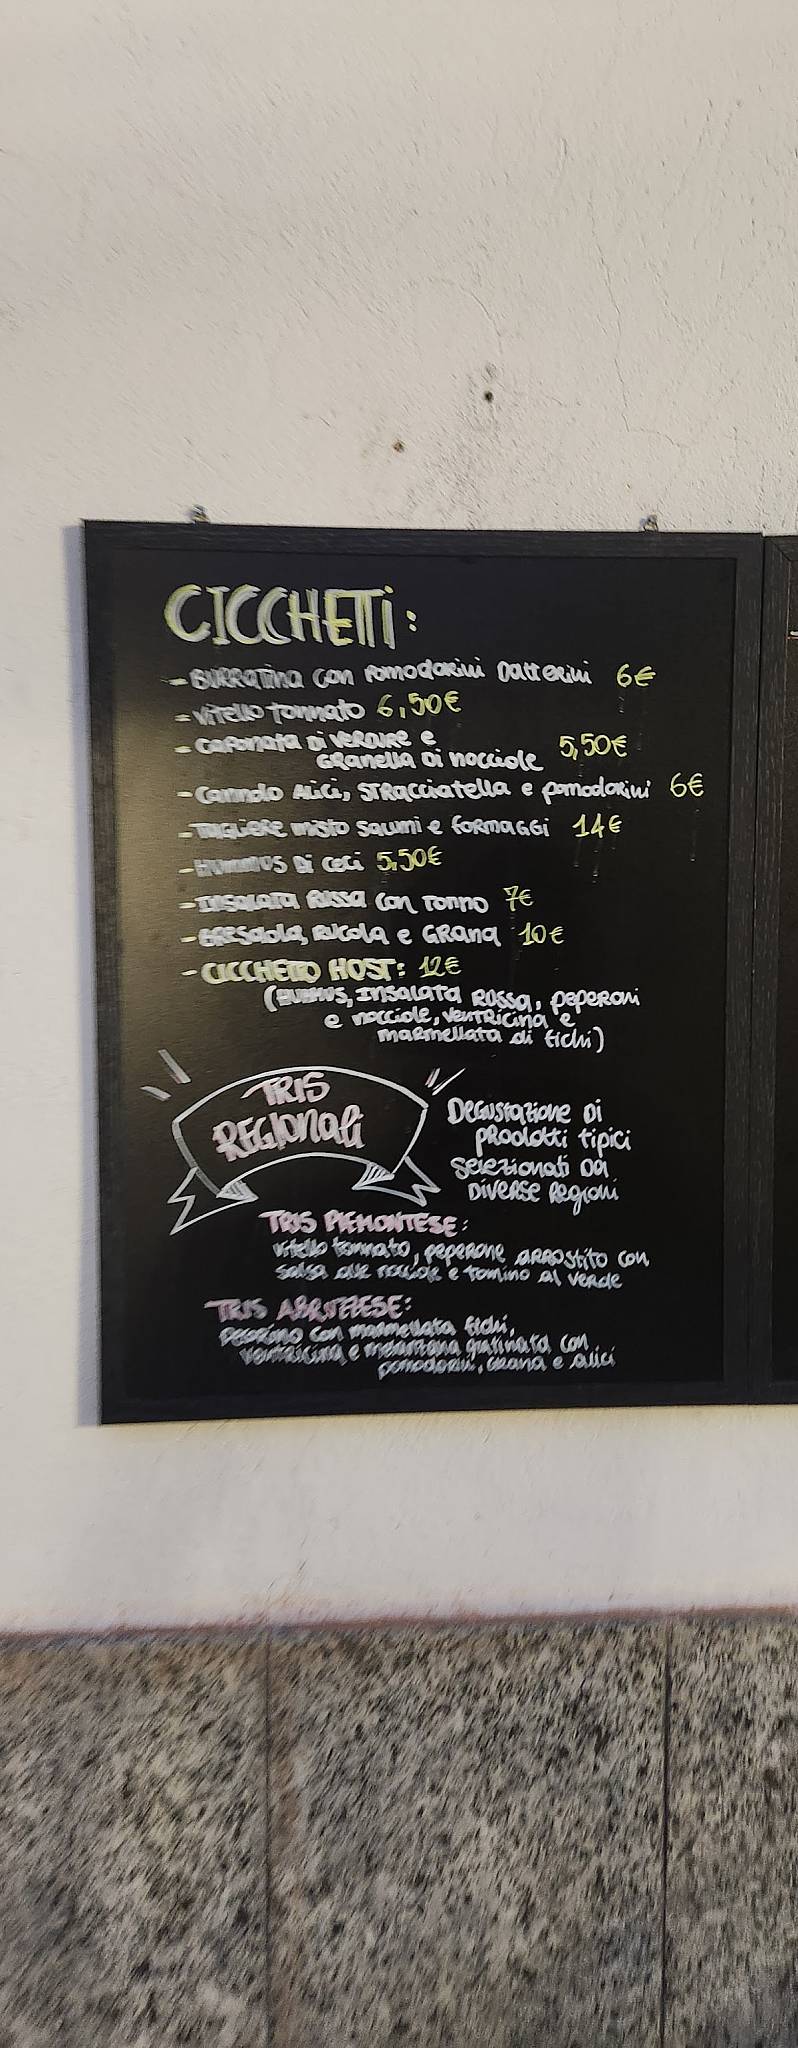 CICCHETTi:
- BURRATina con pomodorini Datterini 6€
- vitello tonnato 6,50€
- caponata Di VERDURE e
GRanella Di nocciole 5,50€
- cannolo Alici, STRacciatella e pomodorini 6€
- TAGLIERE misto salumi e formaggi 14€
- HUMMUS Di ceci 5,50€
- INSALATA RUSSA con Tonno 7€
- BRESaola, RUCOLa e GRana 10€
- CICCHETTO HOST: 12€
(HUMMUS, INSalata RUSSa, peperoni
e nocciole, ventricina e
marmellata di fichi)
TRIS
REGIOnali
DEGUSTazione Di
prodotti tipici
selezionati Da
DIVERSE Regioni
TRIS PIEMONTESE:
vitello tonnato, peperone ARROStito con
salsa alle nocciole e tomino al verde
TRIS ABRUZZESE:
pecorino con marmellata fichi,
ventricina, e melanzana gratinata con
pomodorini, GRana e alici